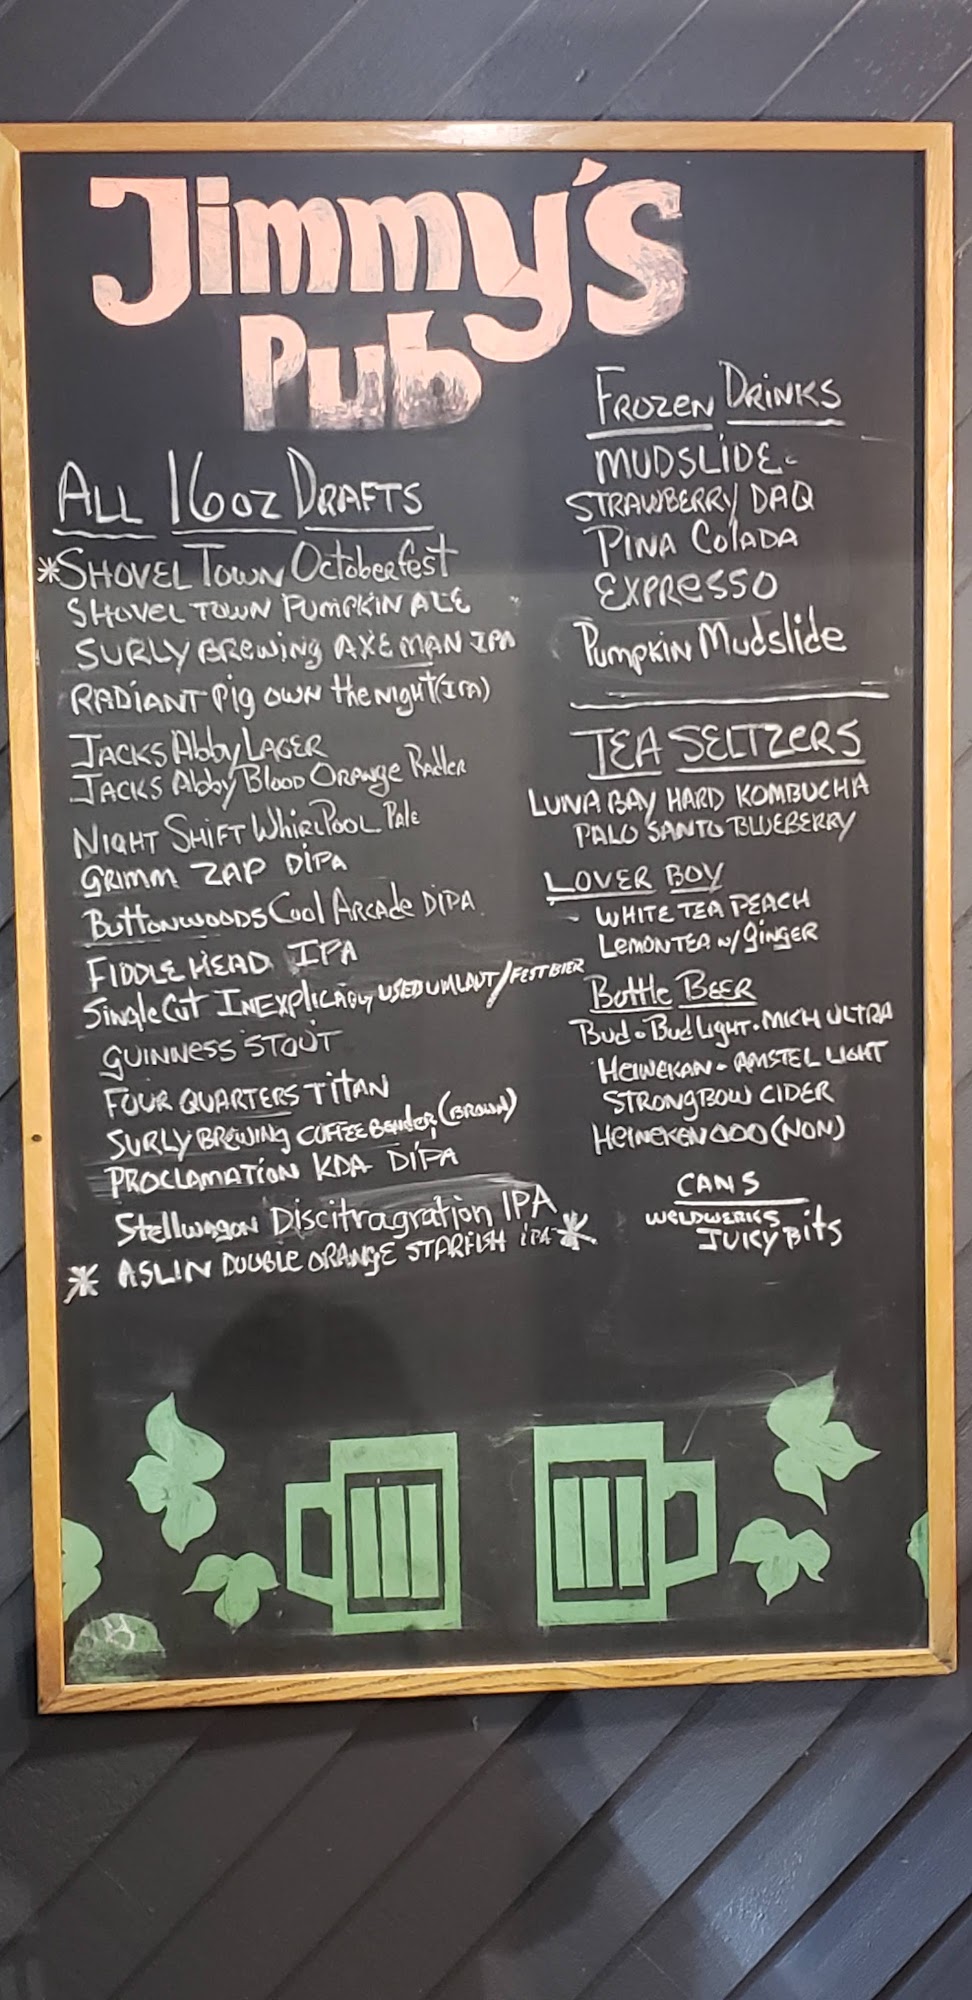 Jimmy's
Pub
ALL 16oz DRAFTS
*SHOVEL TOWN Octoberfest
SHOVEL TOWN PUMPKIN ALE
SURLY BREWING AXE MAN IPA
RADIANT Pig OWN the NIGHT (IPA)
JACKS Abby LAGER
JACKS Abby Blood ORANGE Radler
NIGHT SHIFT WhirlPOOL Pale
GRIMM ZAP DIPA
BUTTONWOODS Cool ARCADE DIPA
FIDDLEHEAD IPA
Single Cut INEXPLICABLY USED UMLAUT/FESTBIER
GUINNESS STOUT
FOUR QUARTERS TITAN
SURLY BREWING COFFEE BENDER (BROWN)
PROCLAMATION KDA DIPA
Stellwagon Discitragration IPA
* ASLIN DOUBLE ORANGE STARFISH IPA *
FROZEN DRINKS
MUDSLIDE-
STRAWBERRY DAQ
PINA COLADA
EXPRESSO
PUMPKIN Mudslide
TEA SELTZERS
LUNA BAY HARD KOMBUCHA
PALO SANTO BLUEBERRY
LOVER BOY
- WHITE TEA PEACH
LEMON TEA w/ GINGER
Bottle BEER
Bud - Bud Light - MICH ULTRA
HEINEKAN - AMSTEL LIGHT
STRONGBOW CIDER
HEINEKEN 000 (NON)
CANS
WELDWERKS
JUICY Bits